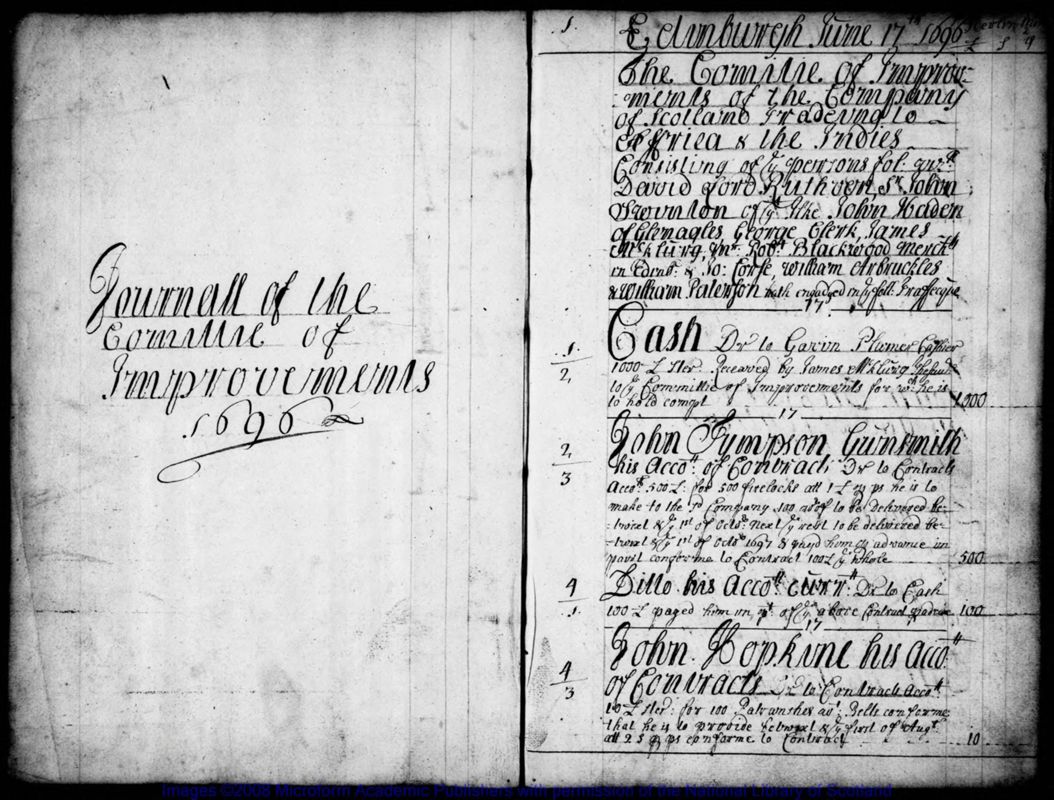 Journall of the
Comittie of
Improvements
1696
1.
Edinburgh June 17th 1696
The Comittie of Improv-
-ments of the Company
of Scotland Tradeing to
Affrica & the Indies
Consisting of ye persons fol:
David Lord Ruthven, Sr John
Swinton of yt Ilke John Haden
of Glenagles, George Clerk, James
McKlurg, Mr. Robt. Blackwood Merchts
in Edenr. & Jo: Corse, William Arbuckles
& William Paterson
17
1.
2
Cash Dr to Gavin Plumer Cashier
1000 £ Ster. Received by James McKlurg
to ye Committie of Improvements for wch he is
to hold compt
1000
17
2
3
John Tympson Gunsmith
his Accott of Contract Dr to Contracts
Accott 500£: for 500 firelocks att 1 £ ps he is to
make to the sd Company 100 to be Delivered be-
-twixt & ye 1st of Octor next ye rest to be delivered be-
-twixt & ye 1st of Octor 1697 & payd him advance in
conforme to Contract 100£ ye whole
500
4
1
Ditto his Accott Currtt Dr to Cash
100 £ payed him in of ye above Contract
100
17
4
3
John Hopkine his Accott
of Contracts Dr to Contracts Accott
10£ Ster: for 100 Belts conforme
that he is to provide betwixt & ye first of Augt
att 2 S ps conforme to Contract
10
Images ©2008 Microform Academic Publishers with permission of the National Library of Scotland